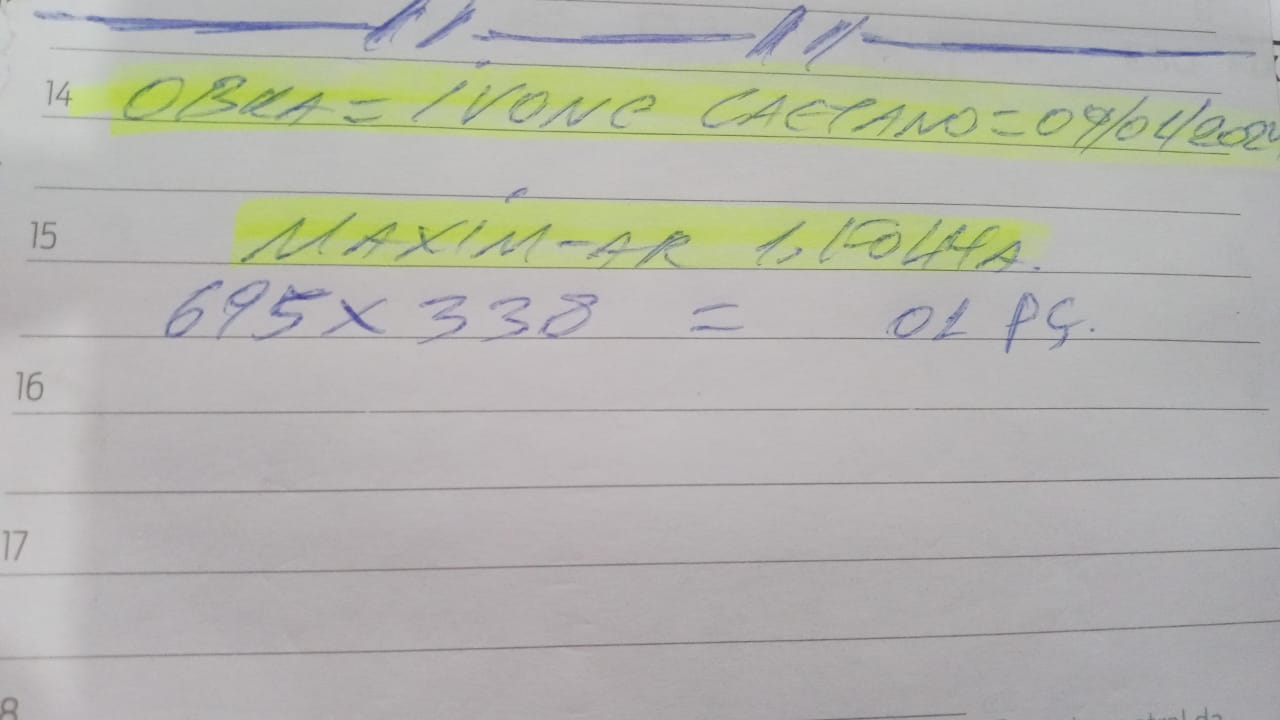 14 OBRA = IVONE CAETANO = 09/04/202
15 MAXIM-AR 1. FOLHA.
695 x 338 = 01 PÇ.
16
17
8